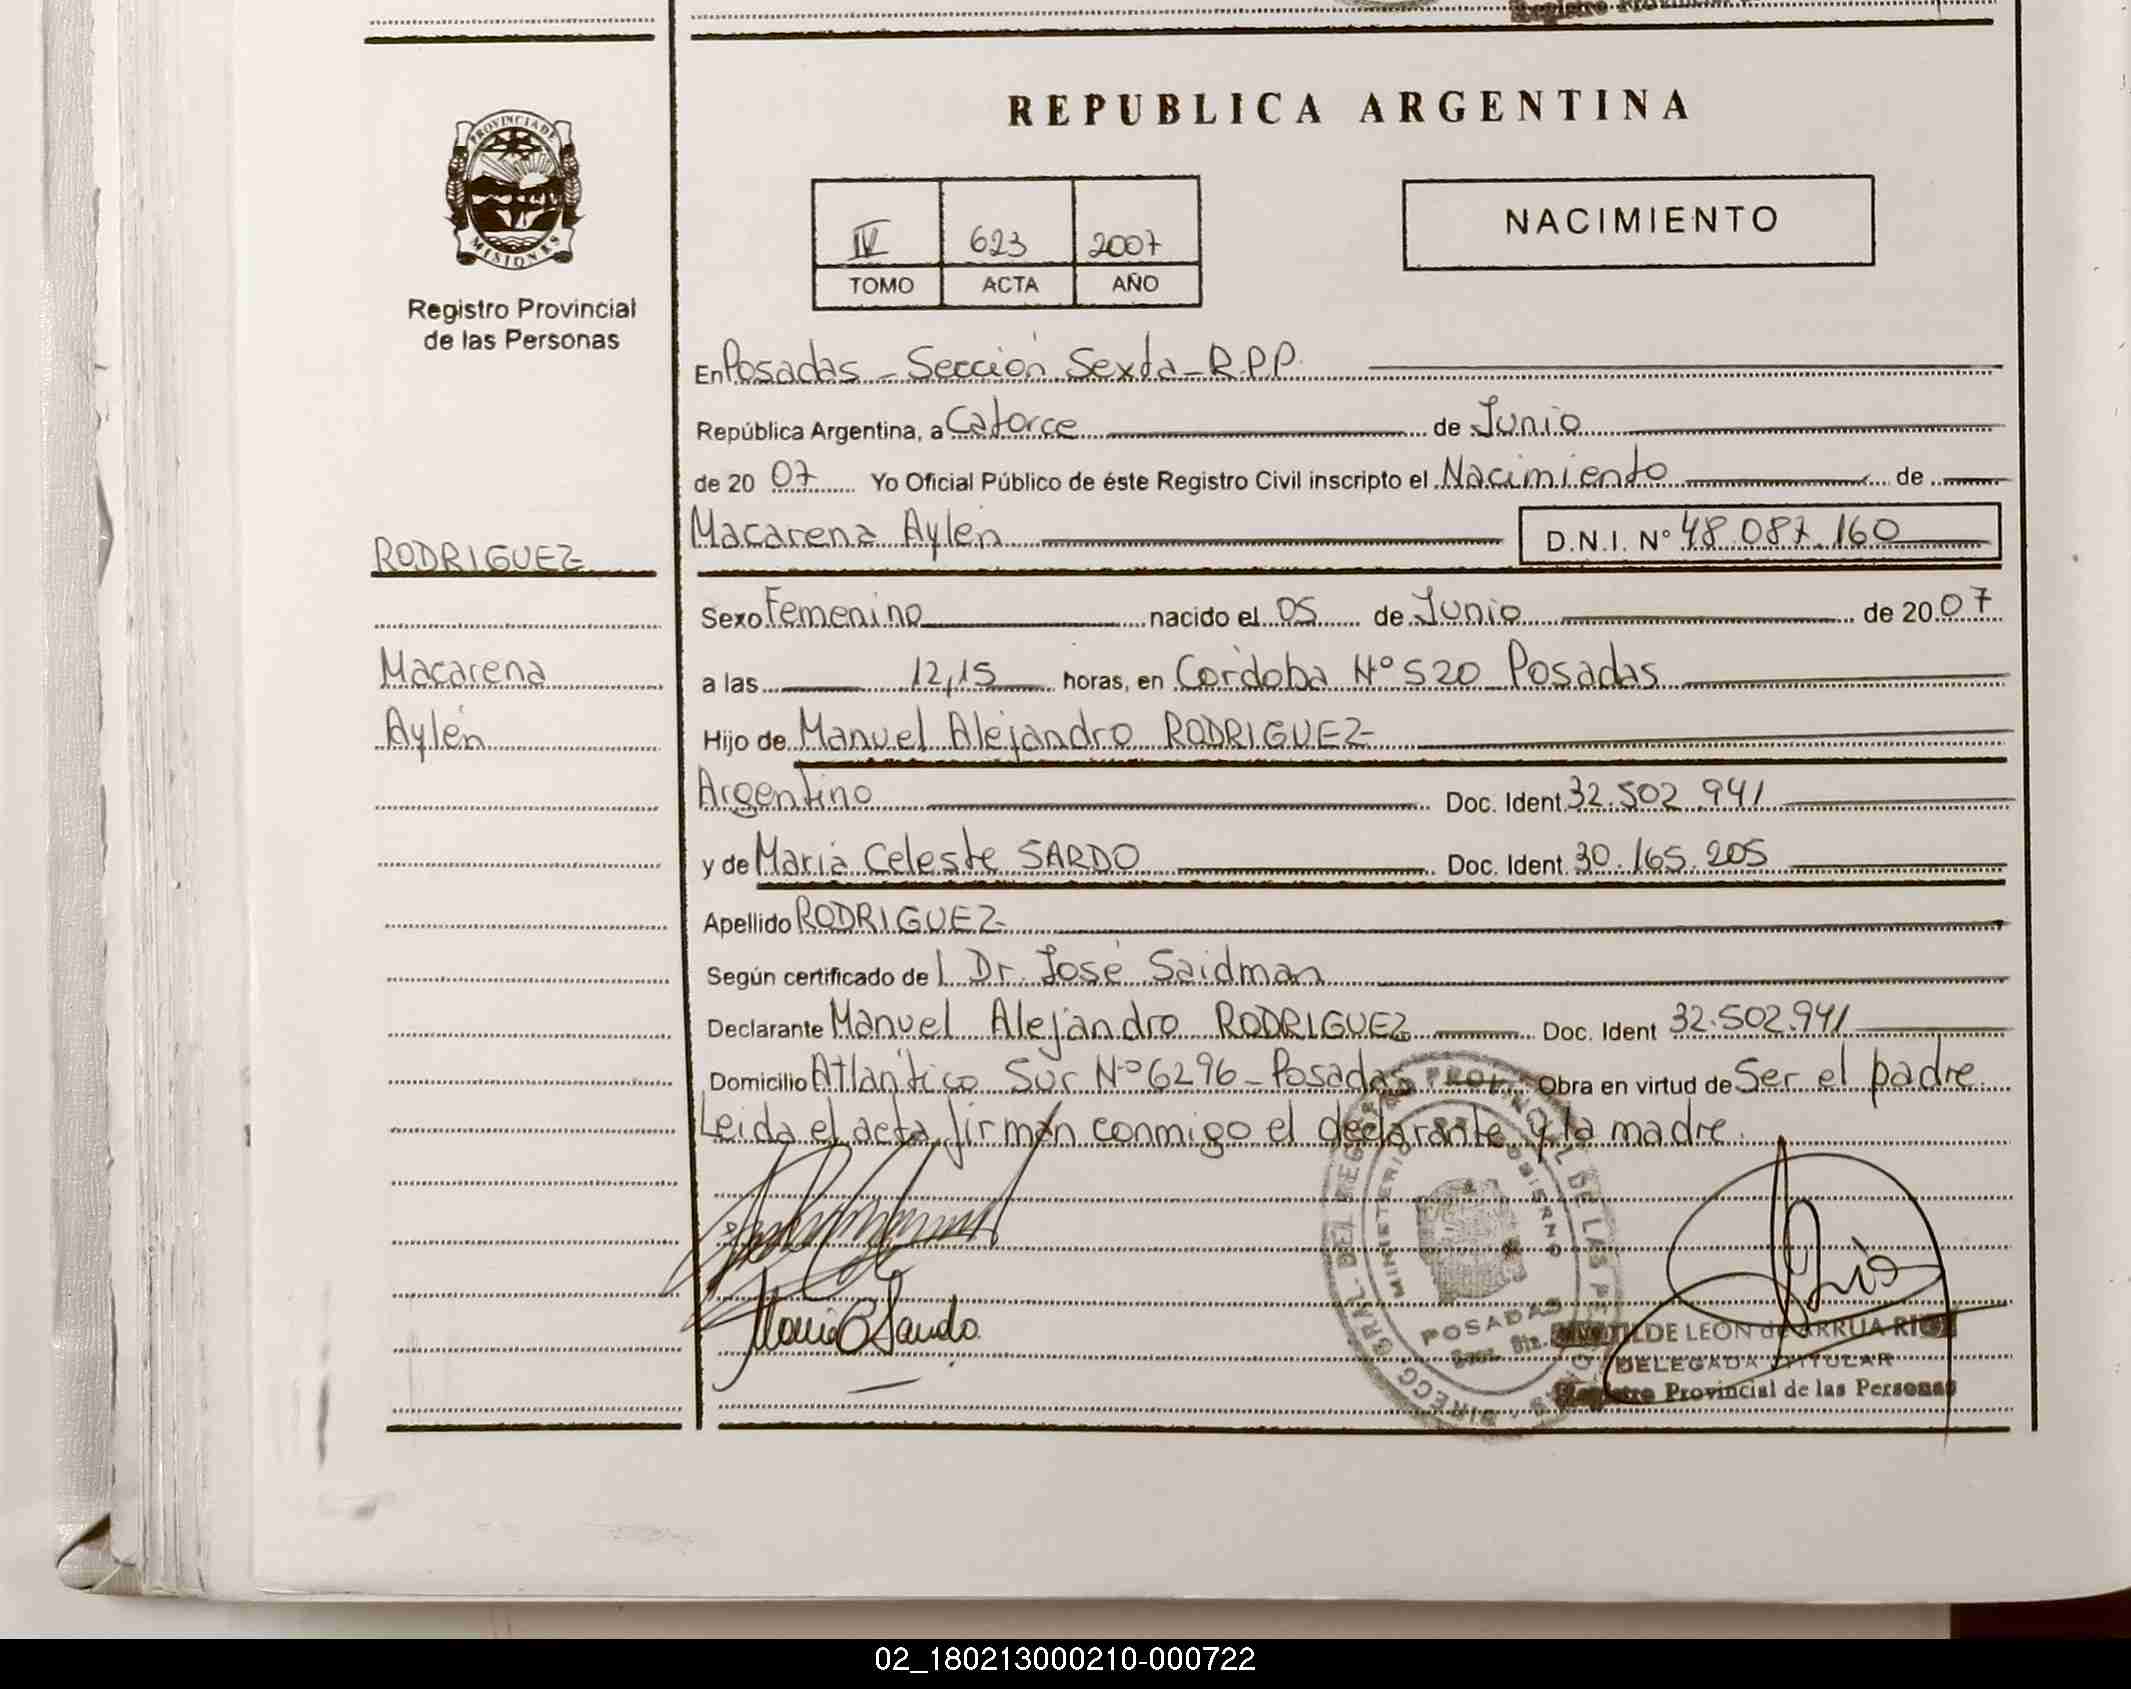 REPUBLICA ARGENTINA
PROVINCIA DE
MISIONES
Registro Provincial
de las Personas
IV 623 2007
TOMO ACTA AÑO
NACIMIENTO
En Posadas - Sección Sexta - R.P.P.
República Argentina, a Catorce de Junio
de 20 07 Yo Oficial Público de éste Registro Civil inscripto el Nacimiento de
RODRIGUEZ
Macarena Aylén D.N.I. N° 48.087.160
Sexo Femenino nacido el 05 de Junio de 20 07
Macarena
a las 12,15 horas, en Córdoba N° 520 Posadas
Aylén
Hijo de Manuel Alejandro RODRIGUEZ
Argentino Doc. Ident. 32.502.941
y de María Celeste SARDO Doc. Ident. 30.165.205
Apellido RODRIGUEZ
Según certificado del Dr. José Saidman
Declarante Manuel Alejandro RODRIGUEZ Doc. Ident 32.502.941
Domicilio Atlántico Sur N° 6296 - Posadas Obra en virtud de Ser el padre.
Leída el acta, firman conmigo el declarante y la madre.
Maria C Sardo
MINISTERIO DE GOBIERNO
POSADAS
LEON de ARRUA
DELEGADA TITULAR
Registro Provincial de las Personas
02_180213000210-000722